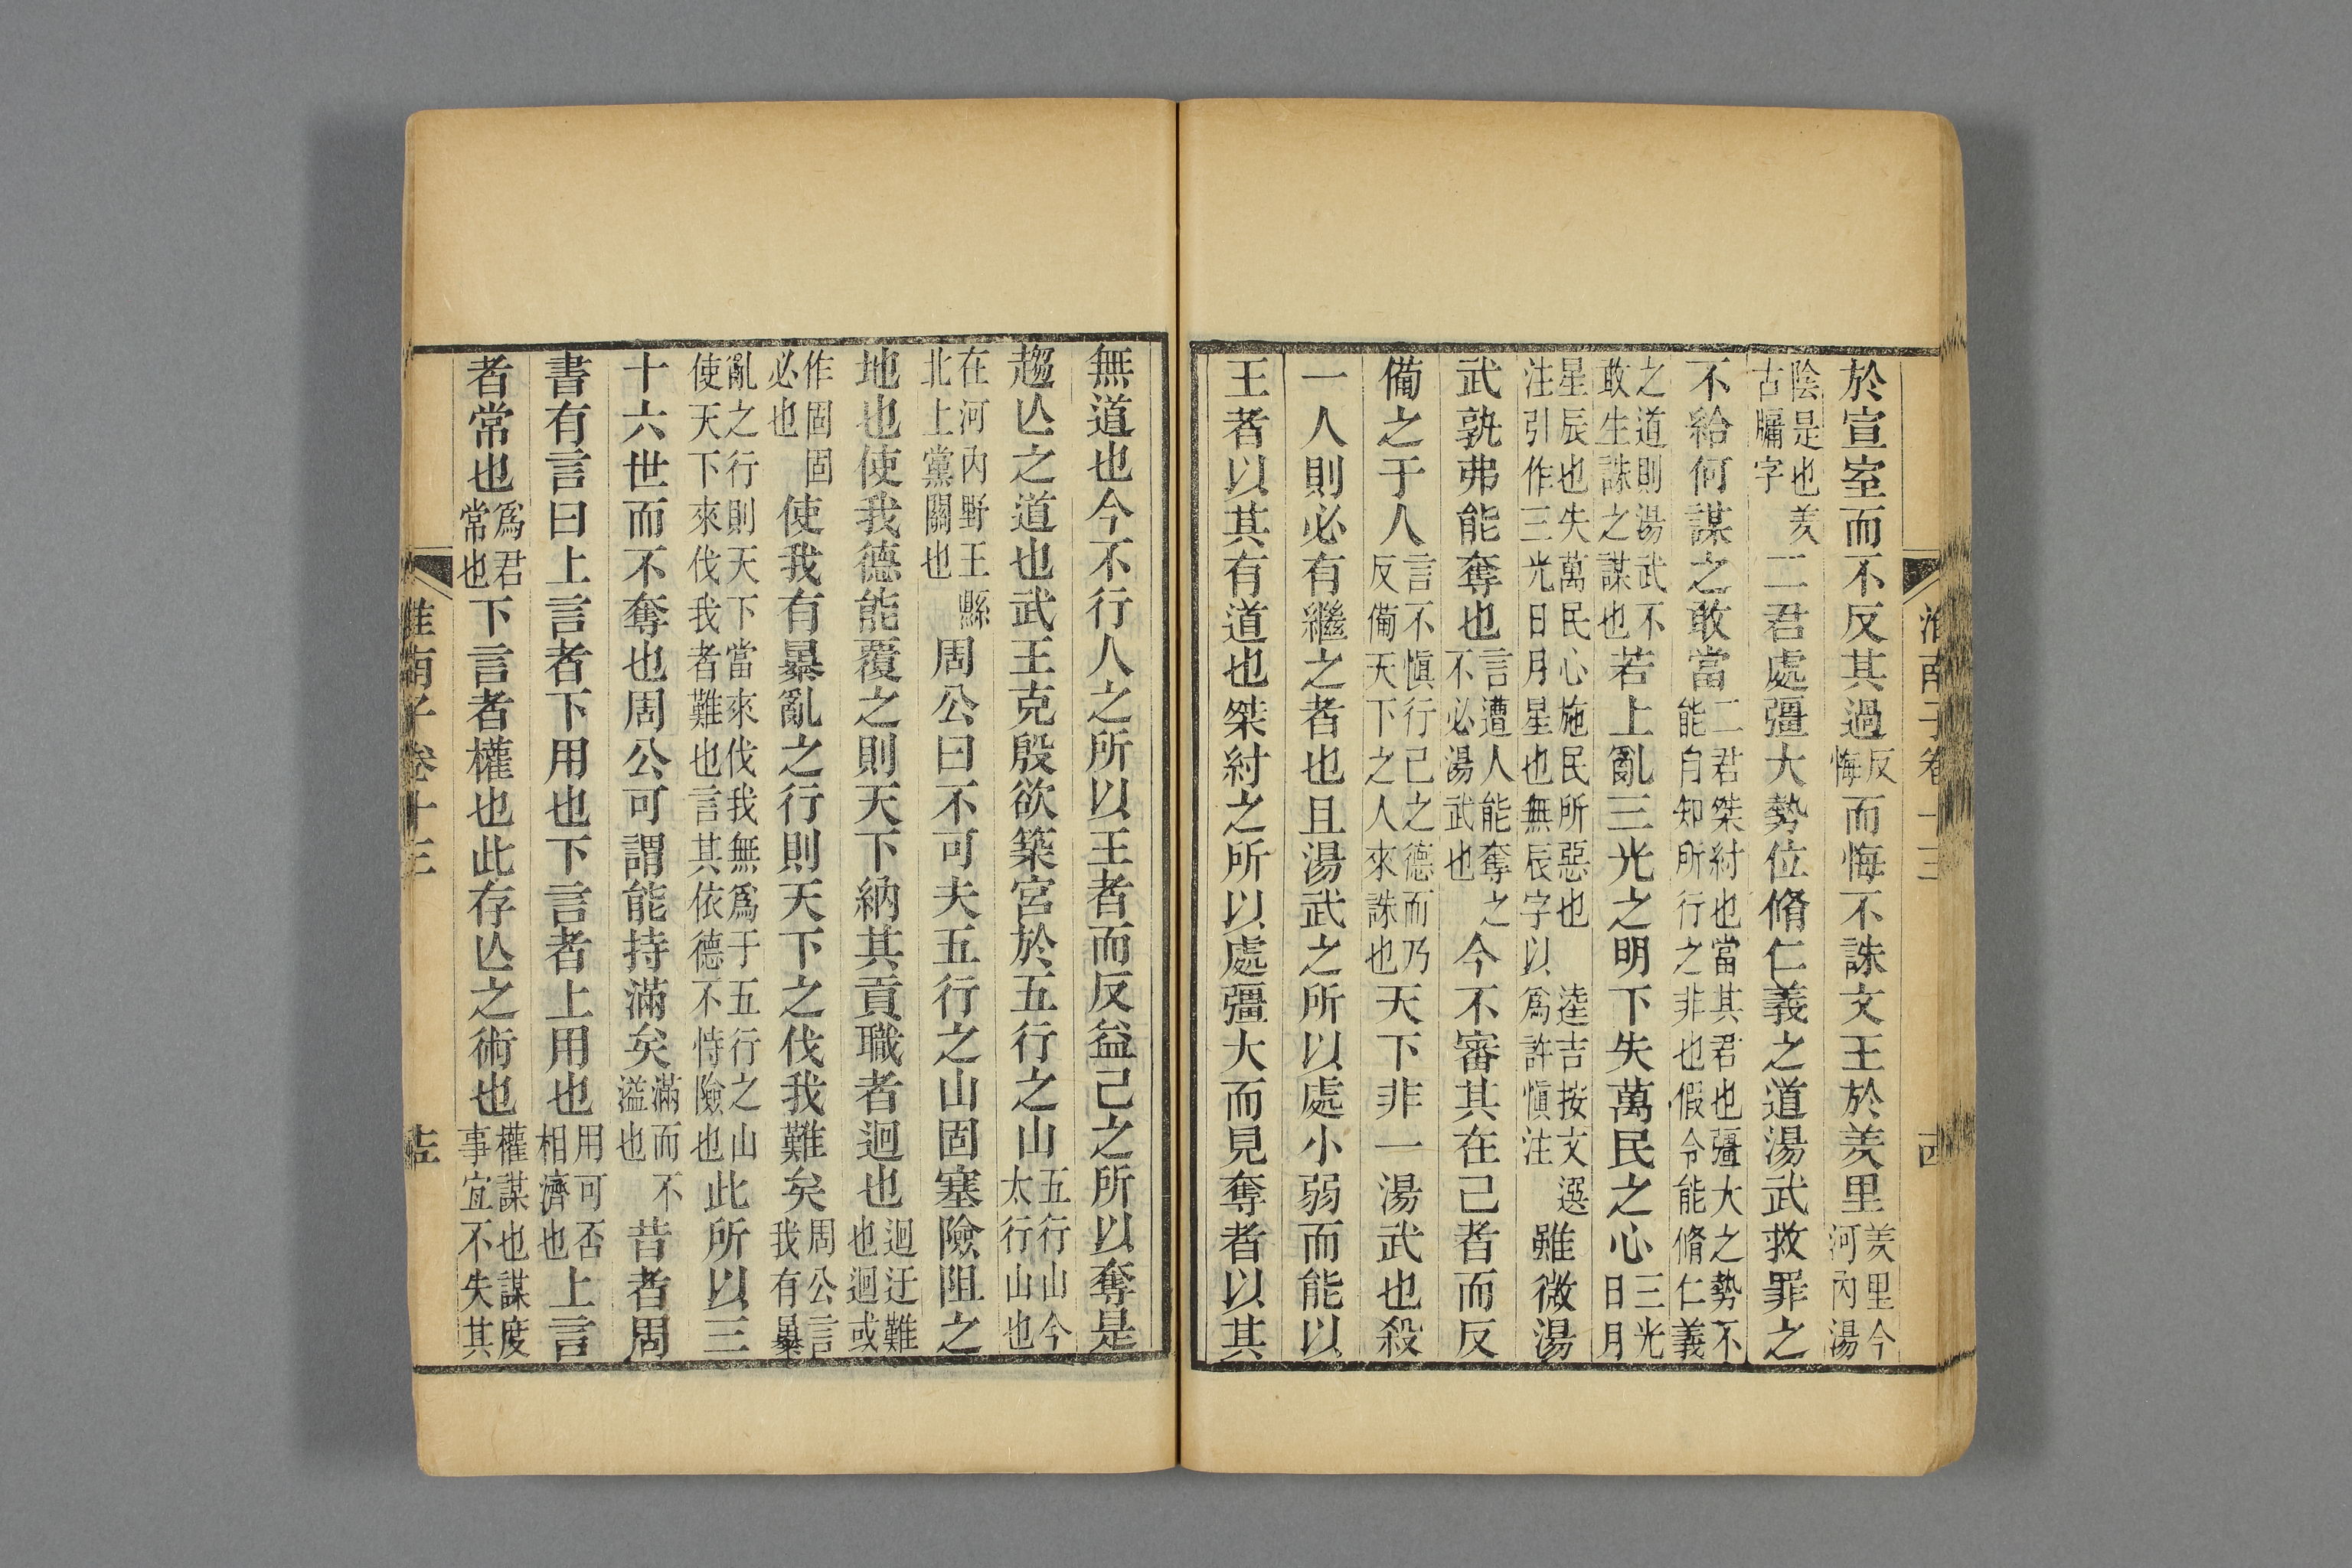 於宣室而不反其過反悔而悔不誅文王於羑里羑里今河內湯
陰是也羑古牖字二君處彊大勢位脩仁義之道湯武救罪之
不給何謀之敢當二君桀紂也當其君也彊大之勢不能自知所行之非也假令能脩仁義
之道則湯武不敢生誅之謀也若上亂三光之明下失萬民之心三光日月
星辰也失萬民心施民所惡也 逵吉按文選注引作三光日月星也無辰字以爲許愼注雖微湯
武孰弗能奪也言遭人能奪之不必湯武也今不審其在己者而反
備之于人言不愼行己之德而乃反備天下之人來誅也天下非一湯武也殺
一人則必有繼之者也且湯武之所以處小弱而能以
王者以其有道也桀紂之所以處彊大而見奪者以其
無道也今不行人之所以王者而反益己之所以奪是
趨亾之道也武王克殷欲築宮於五行之山五行山今太行山也
在河內野王縣北上黨關也周公曰不可夫五行之山固塞險阻之
地也使我德能覆之則天下納其貢職者迴也迴迂難也迴或
作固固必也使我有暴亂之行則天下之伐我難矣周公言我有暴
亂之行則天下當來伐我無爲于五行之山使天下來伐我者難也言其依德不恃險也此所以三
十六世而不奪也周公可謂能持滿矣滿而不溢也昔者周
書有言曰上言者下用也下言者上用也用可否相濟也上言
者常也爲君常也下言者權也此存亾之術也權謀也謀度事宜不失其
淮南子卷十三